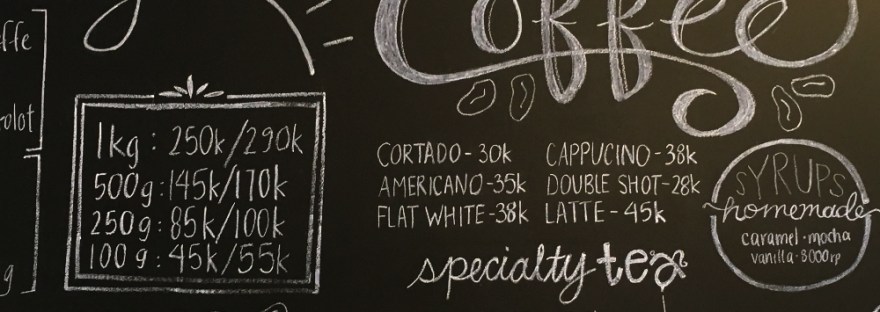 Coffee
1kg : 250k/290k
500g : 145k/170k
250g : 85k/100k
100g : 45k/55k
CORTADO - 30k
AMERICANO - 35k
FLAT WHITE - 38k
CAPPUCINO - 38k
DOUBLE SHOT - 28k
LATTE - 45k
specialty tea
SYRUPS
homemade
caramel · mocha
vanilla · 8000rp